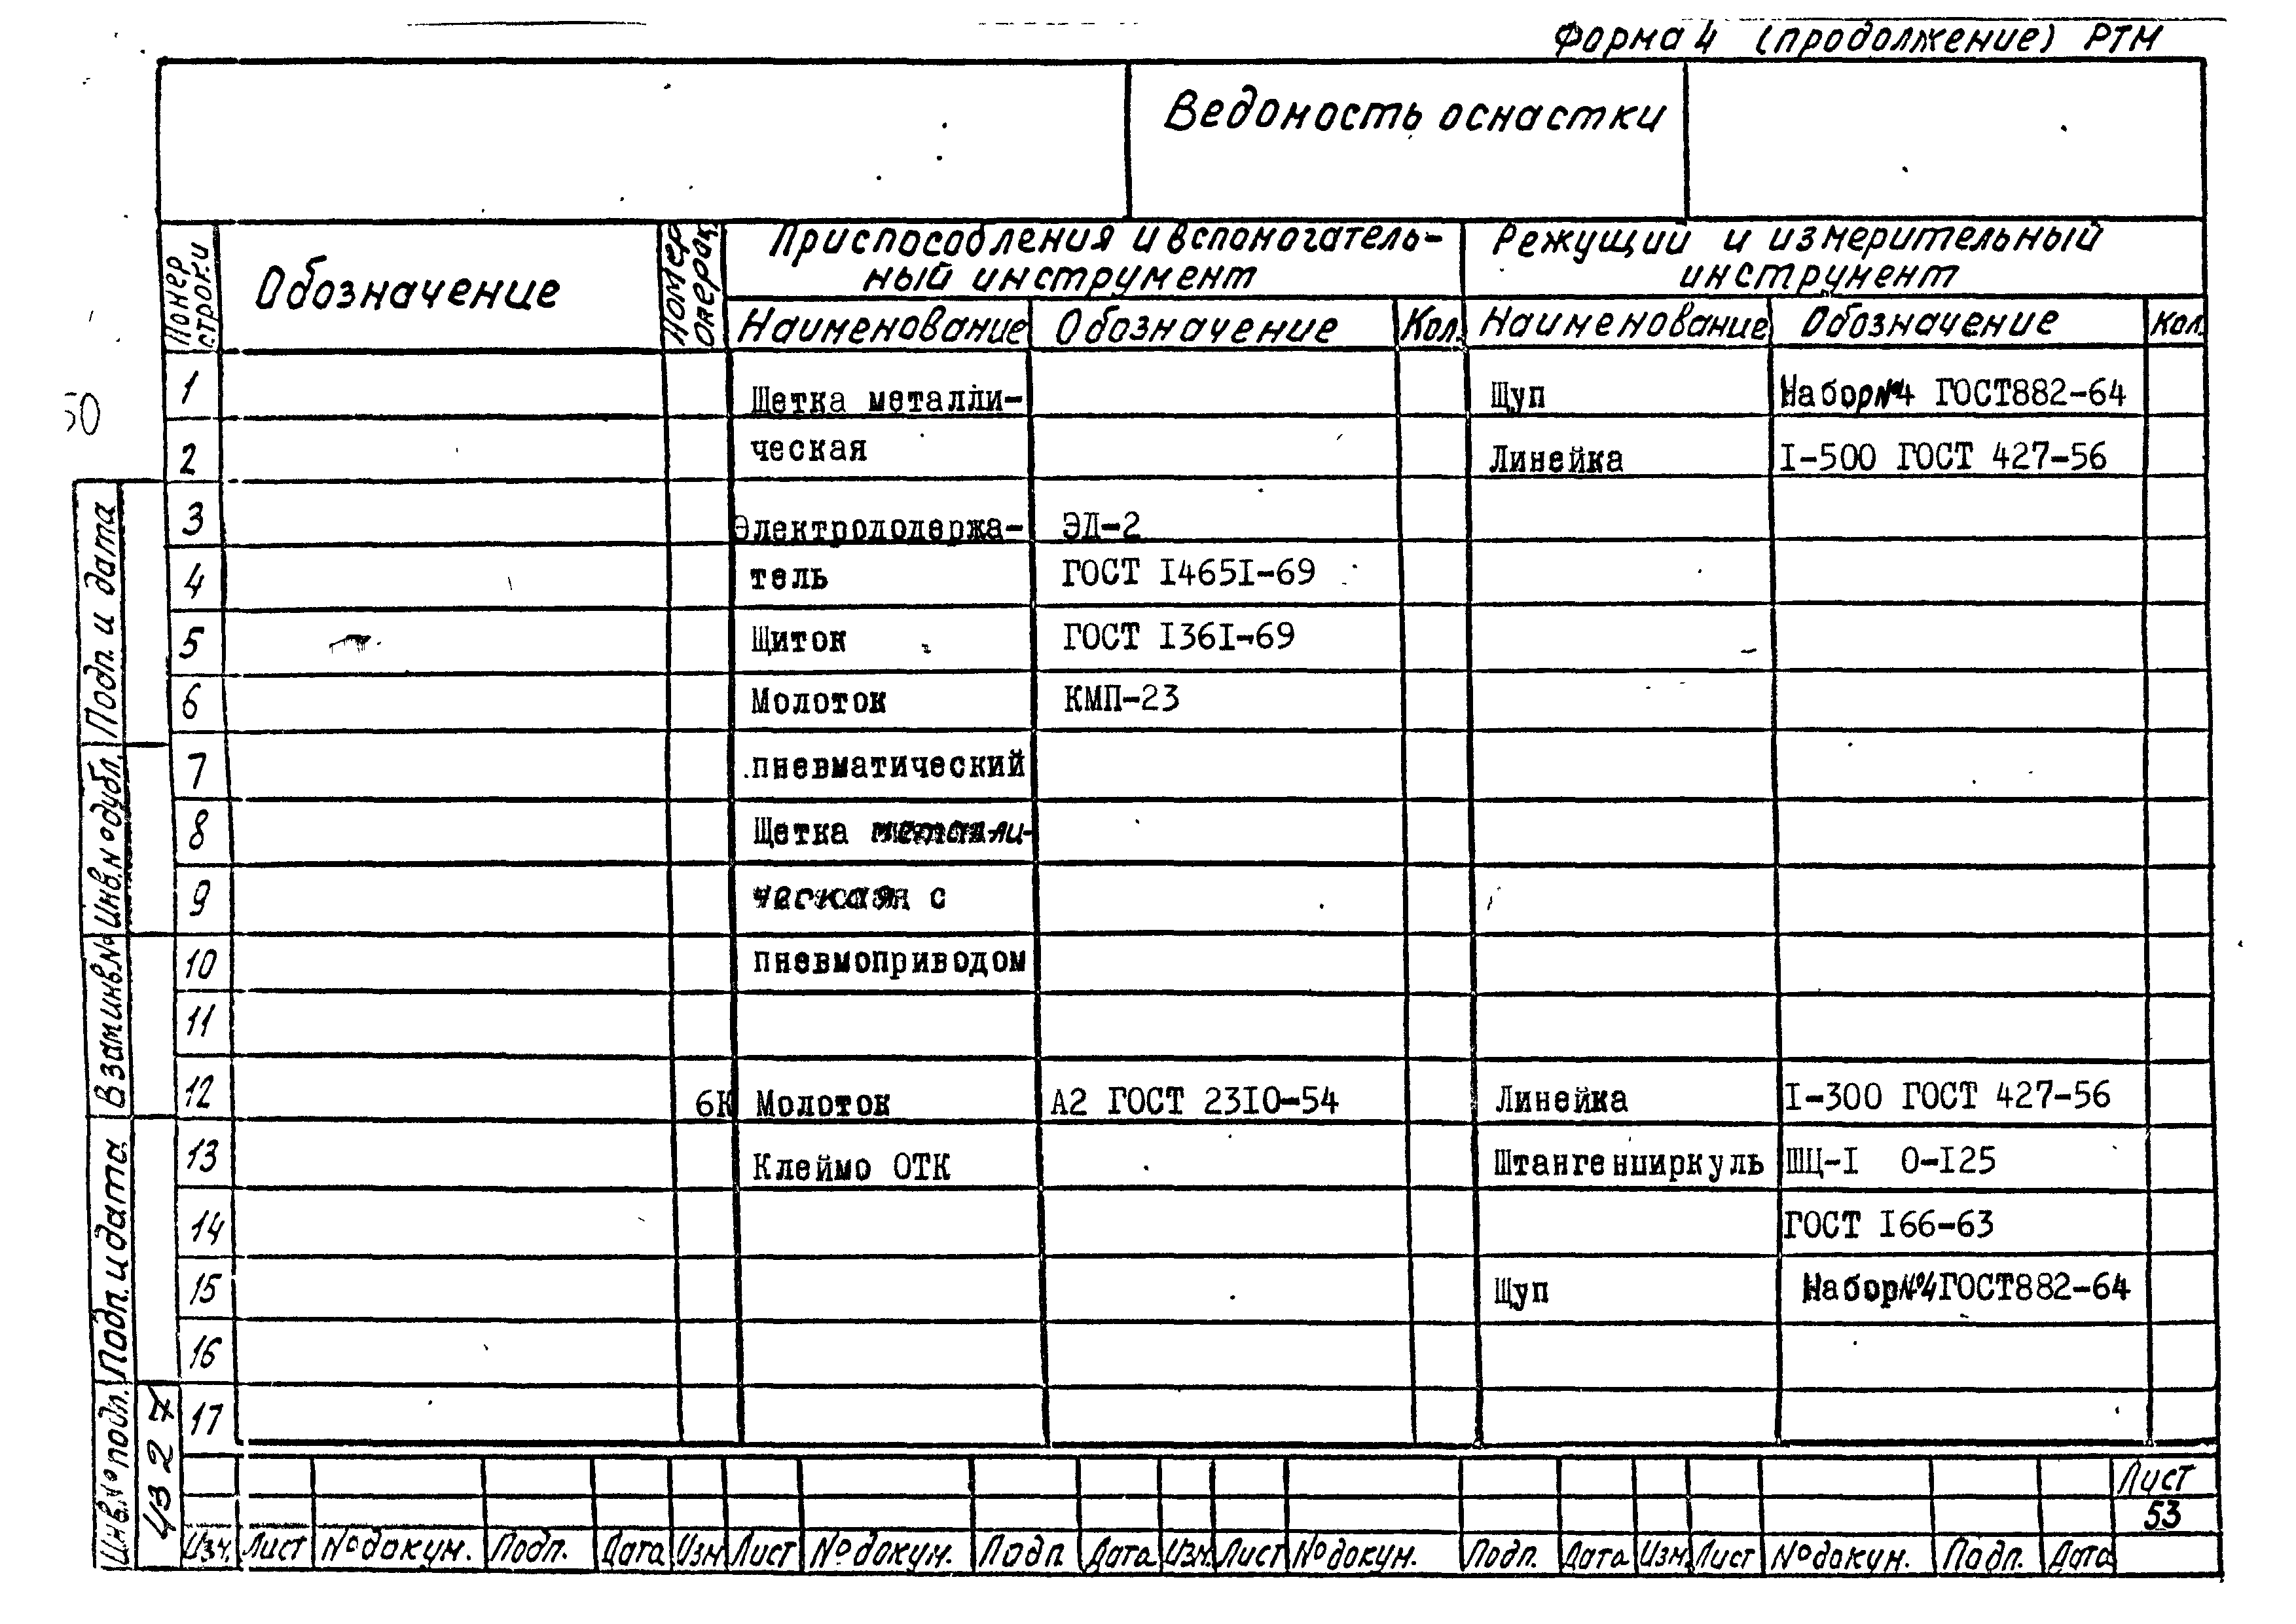 Форма 4 (продолжение) РТМ
Ведомость оснастки
Номер строки
Обозначение
Номер операц.
Приспособления и вспомогатель-
ный инструмент
Режущий и измерительный
инструмент
Наименование Обозначение Кол. Наименование Обозначение Кол.
1 Щетка металли- Щуп Набор №4 ГОСТ882-64
2 ческая Линейка I-500 ГОСТ 427-56
3 Электрододержа- ЭД-2
4 тель ГОСТ I465I-69
5 Щиток ГОСТ I36I-69
6 Молоток КМП-23
7 пневматический
8 Щетка металли-
9 ческая с
10 пневмоприводом
11
12 6К Молоток А2 ГОСТ 23I0-54 Линейка I-300 ГОСТ 427-56
13 Клеймо ОТК Штангенциркуль ШЦ-I 0-I25
14 ГОСТ I66-63
15 Щуп Набор №4 ГОСТ882-64
16
17
50
Подп. и дата
Инв.№ дубл.
Взам инв.№
Подп. и дата
Инв.№ подл.
4327
Лист
53
Изм. Лист № докум. Подп. Дата Изм Лист № докум. Подп Дата Изм. Лист № докум. Подп. Дата Изм. Лист № докум. Подп. Дата